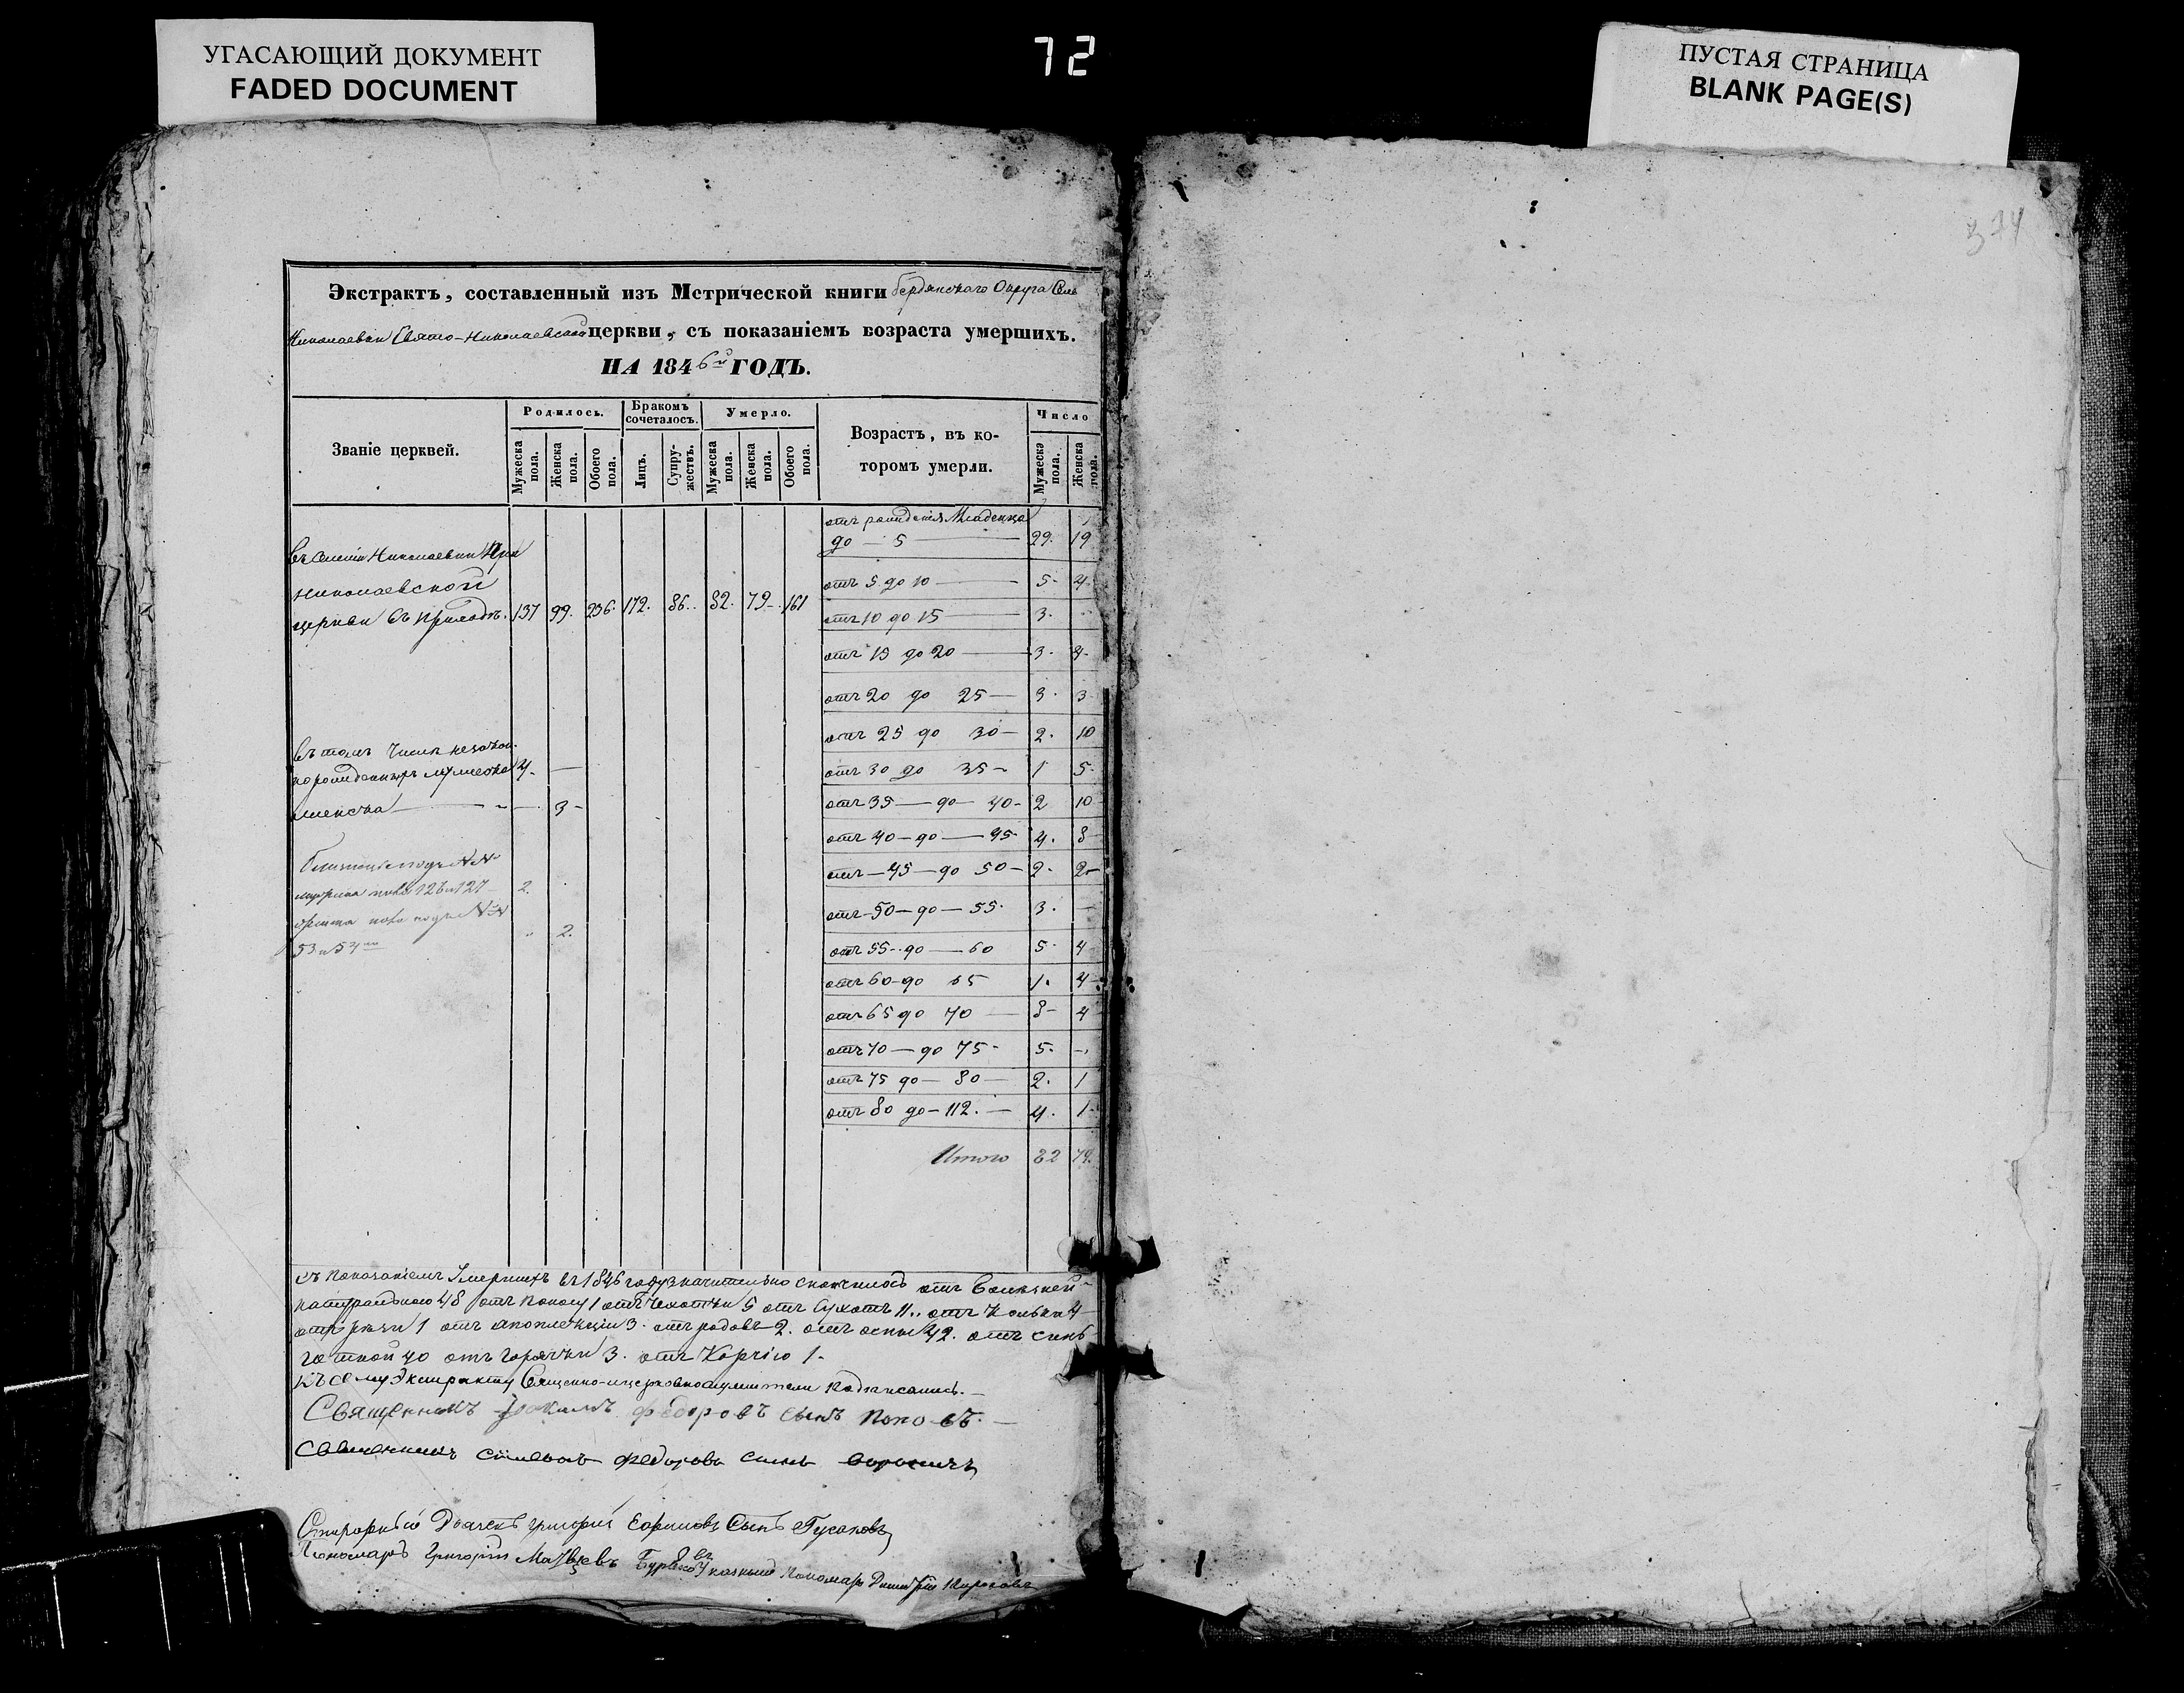 УГАСАЮЩИЙ ДОКУМЕНТ
FADED DOCUMENT
72
ПУСТАЯ СТРАНИЦА
BLANK PAGE(S)
374
Экстрактъ, составленный изъ Метрической книги бердянскаго Округа Сел.
Николаевки Свято-Николаевской церкви, съ показаніемъ возраста умершихъ.
НА 1846й ГОДЪ.
Званіе церквей.
Родилось.
Бракомъ сочеталось.
Умерло.
Возрастъ, въ которомъ умерли.
Число
Мужеска пола.
Женска пола.
Обоего пола.
Лицъ.
Супружествъ.
Мужеска пола.
Женска пола.
Обоего пола.
Мужеска пола.
Женска пола.
Въ селеніи Николаевки При
Николаевской
церкви въ приходѣ. 137 99. 236. 172. 86. 82. 79. 161
въ томъ числѣ незакон
норожденныхъ мужеска 4. —
женска — 3 -
близнецы подъ №№
мужска пола 126 и 127 2.
женска пола подъ №№
53 и 54 2.
отъ рожденія Младенца
до — 5 — 29. 19
отъ 5 до 10 — 5 - 4
отъ 10 до 15 — 3. -
отъ 15 до 20 — 3. 4
отъ 20 до 25 — 3. 3
отъ 25 до 30 — 2. 10
отъ 30 до 35 - 1 5
отъ 35 — до — 40 - 2 10
отъ 40 — до — 45 4. 8
отъ — 45 — до 50 — 2. 2
отъ 50 — до — 55. 3. —
отъ 55 - до — 60 5. 4
отъ 60 - до 65 1. 4
отъ 65 до 70 — 8 - 4
отъ 70 — до 75 - 5. -
отъ 75 до — 80 — 2. 1
отъ 80 до — 112. — 4. 1
Итого 82 79.
съ показаніемъ Умершихъ въ 1846 году значительно скончилось отъ болезней
натуральною 48 отъ поносу 1 отъ чехотки 5 отъ сухотъ 11.. отъ кольки 4
отъ 1 отъ апоплекціи 3. отъ родовъ 2. отъ оспы 42. отъ
40 отъ горячки 3. отъ Корчію 1.
къ сему Экстракту Священно-и церковнослужители подписались.
Священникъ федоровъ сынъ Поповъ.
Священникъ Симеонъ федоровъ сынъ
Дьячекъ григорій Ефимовъ Сынъ Гусаковъ
Пономарь Григорій Матвѣевъ указный пономарь Димитрій